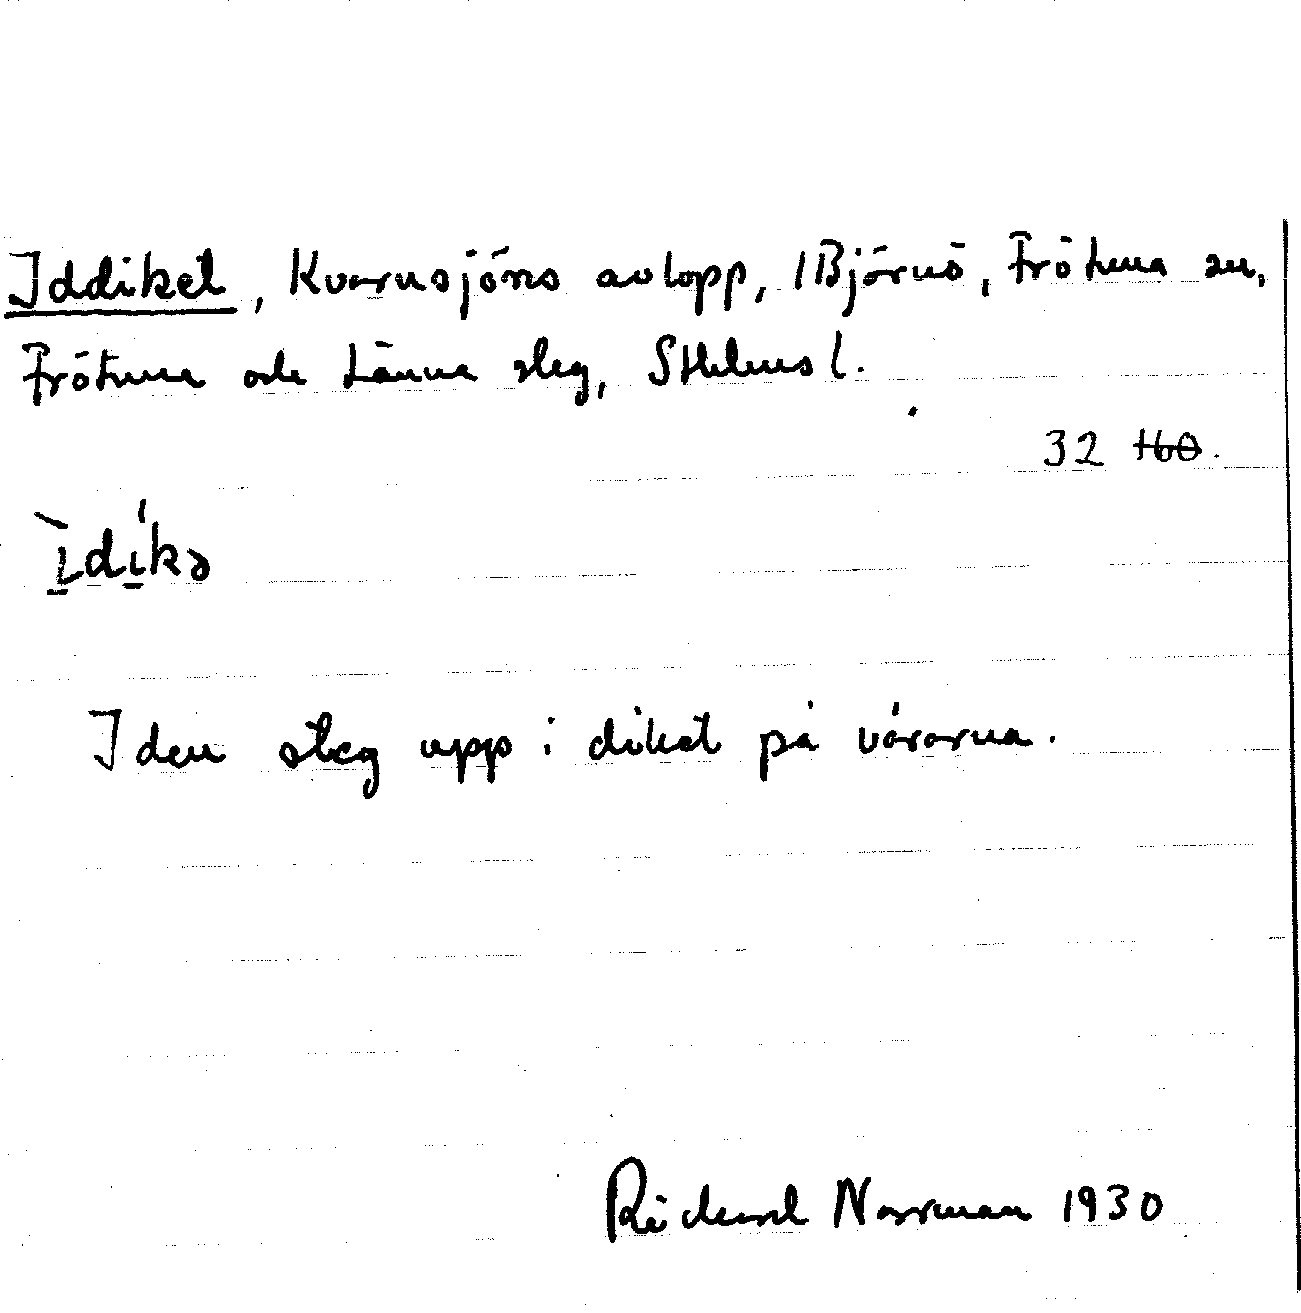 Iddiket, Kvarnsjöns avlopp, /Björnö, Frötuna sn,
Frötuna och Länna sklg, Sthlms l.
32 160.
Ìdíkə
Iden steg upp i diket på vårarna.
Rickard Norrman 1930